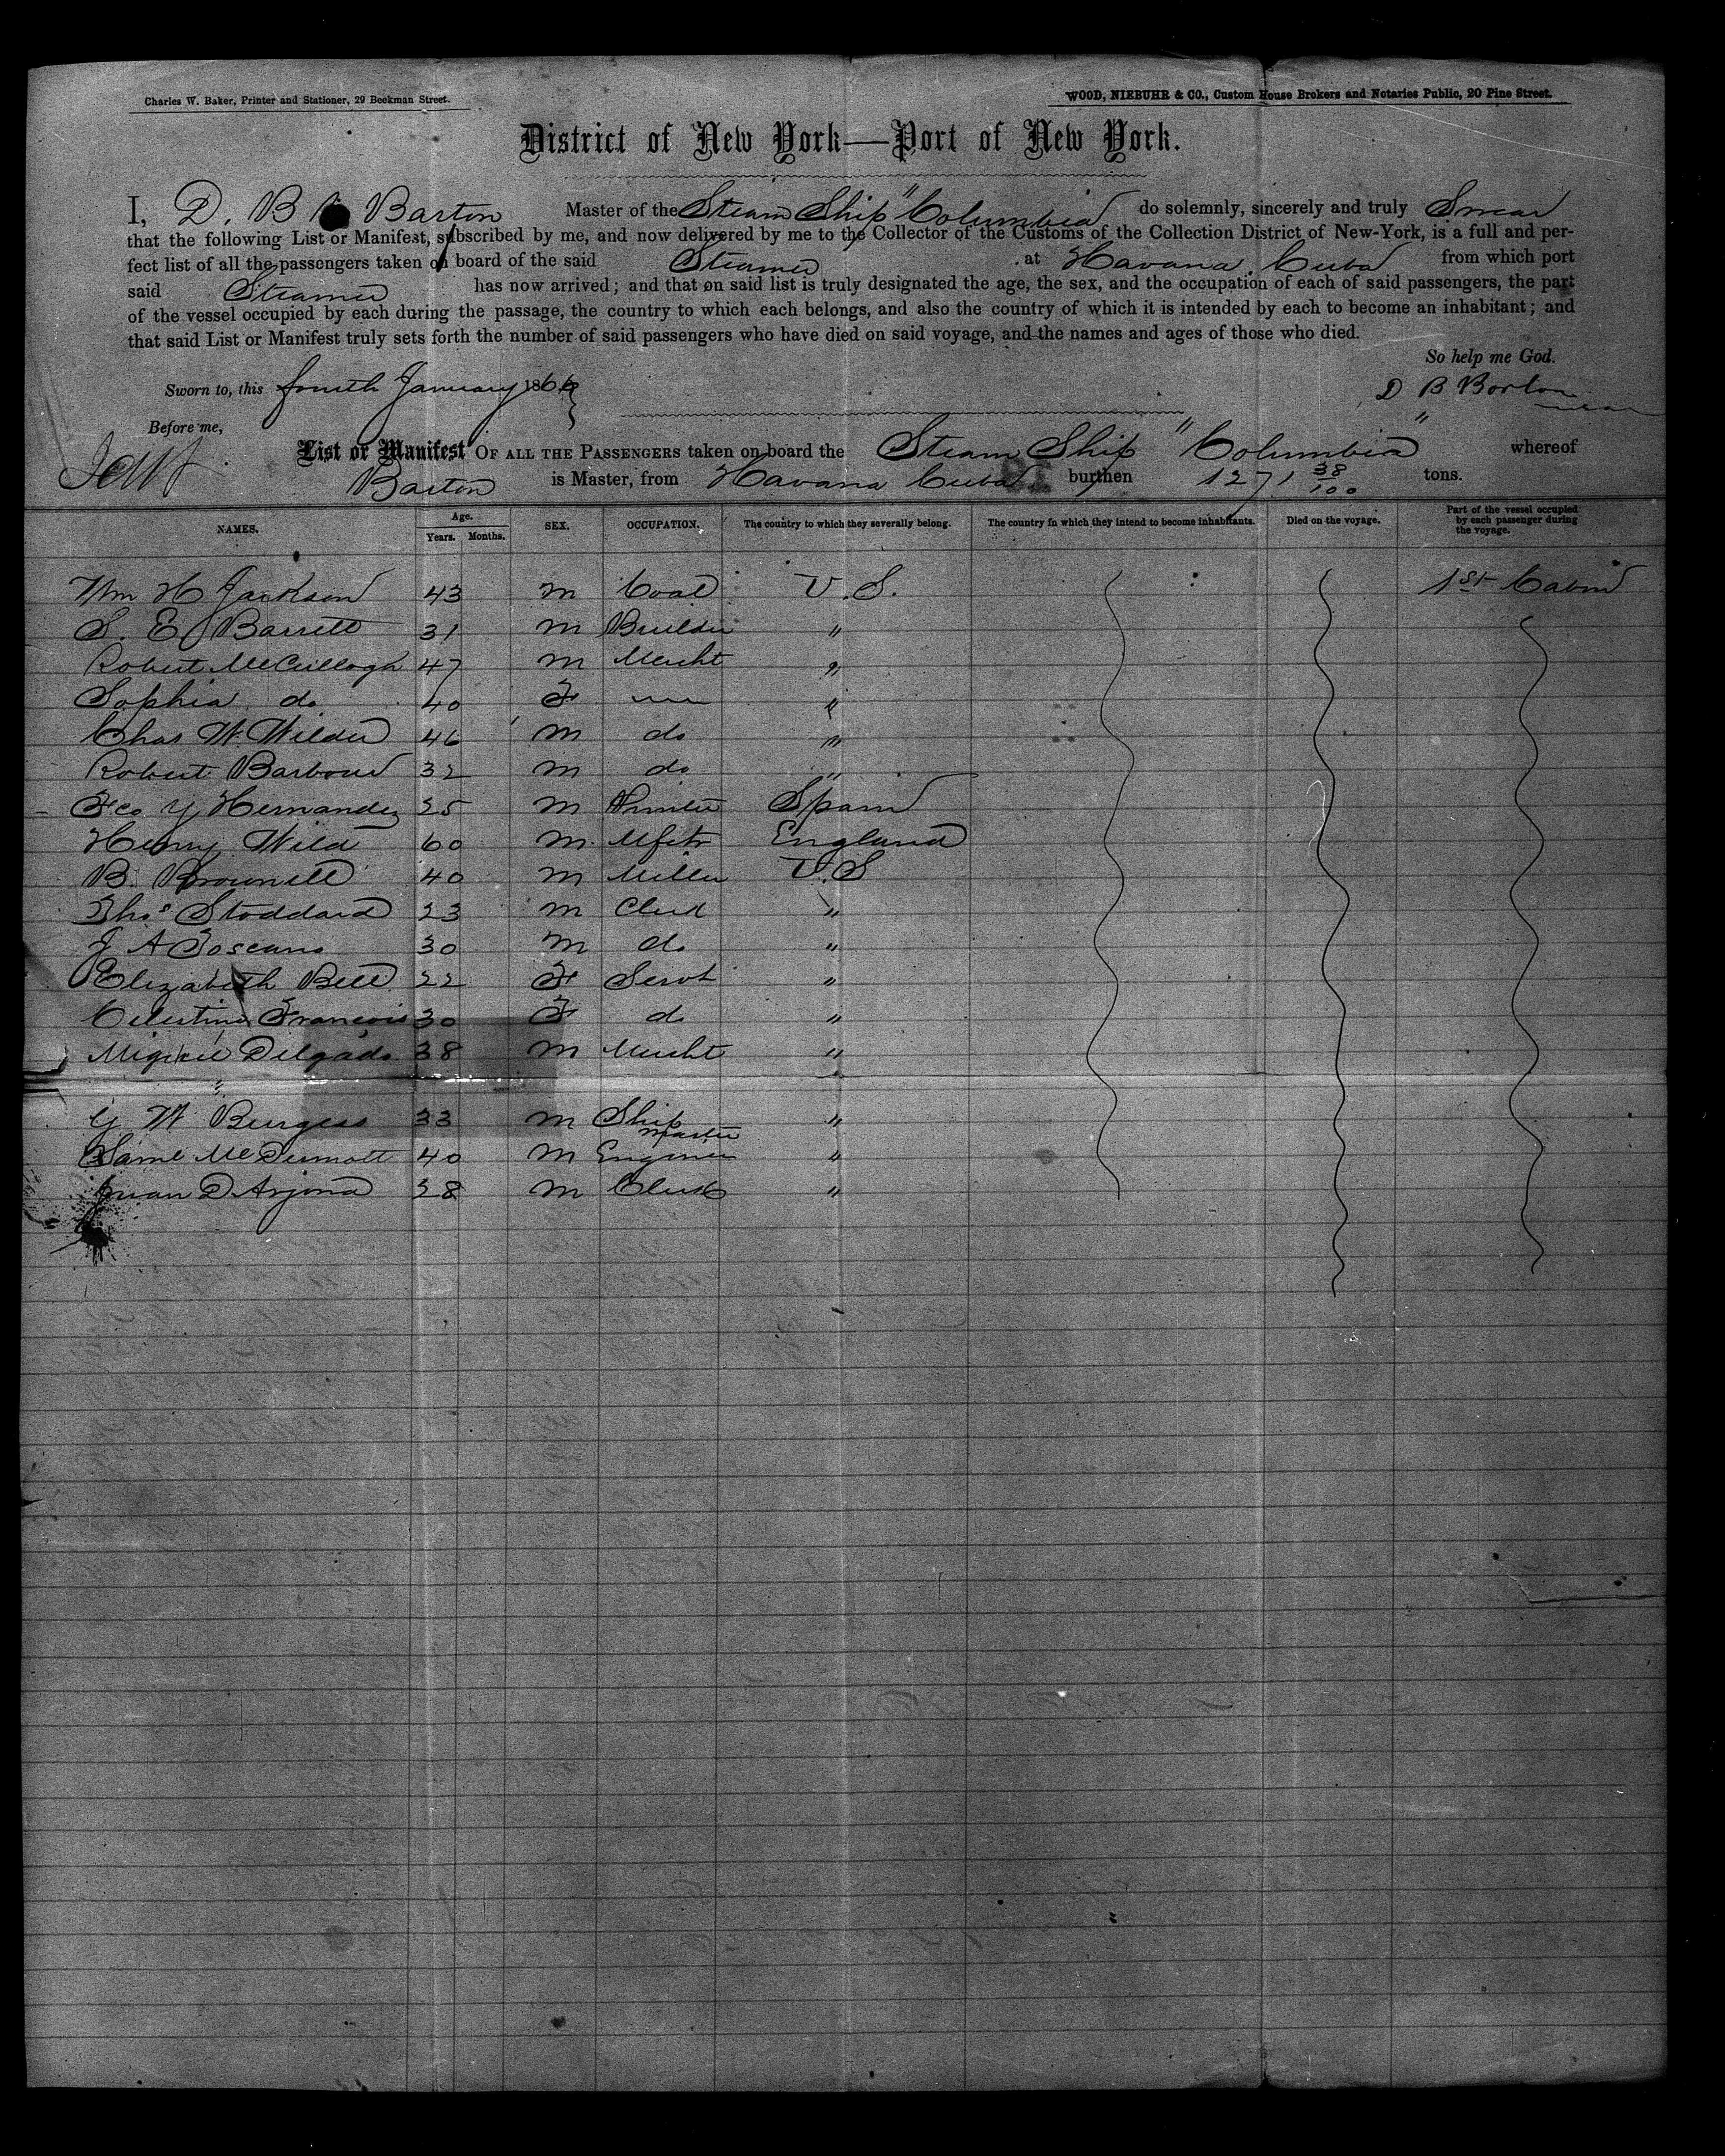 Charles W. Baker, Printer and Stationer, 29 Beekman Street.
WOOD, NIEBUHR & CO., Custom House Brokers and Notaries Public, 20 Pine Street.
District of New York—Port of New York.
I, D. B Barton Master of the Steam Ship "Columbia do solemnly, sincerely and truly Swear
that the following List or Manifest, subscribed by me, and now delivered by me to the Collector of the Customs of the Collection District of New-York, is a full and per-
fect list of all the passengers taken on board of the said Steamer at Havana Cuba from which port
said Steamer has now arrived; and that on said list is truly designated the age, the sex, and the occupation of each of said passengers, the part
of the vessel occupied by each during the passage, the country to which each belongs, and also the country of which it is intended by each to become an inhabitant; and
that said List or Manifest truly sets forth the number of said passengers who have died on said voyage, and the names and ages of those who died.
So help me God.
Sworn to, this fourth January 1866
D B Barton
Before me,
List or Manifest OF ALL THE PASSENGERS taken on board the Steam Ship "Columbia" whereof
Barton is Master, from Havana Cuba burthen 1271 38/100 tons.
NAMES. Age. Years. Months. SEX. OCCUPATION. The country to which they severally belong. The country in which they intend to become inhabitants. Died on the voyage. Part of the vessel occupied by each passenger during the voyage.
Wm H Jackson 43 m Coal U.S. 1st Cabin
S. E. Barrett 31 m Builder "
Robert McCullogh 47 m Mercht "
Sophia do 40 F "
Chas W. Wilder 46 m do "
Robert Barbour 32 m do "
Fco Y Hernandez 25 m Printer Spain
Henry Wild 60 m Mfctr England
B. Brownell 40 m Miller U.S
Thos Stoddard 23 m Clerk "
J A Toscano 30 m do "
Elizabeth Bell 22 F Servt "
Celestine Francois 30 F do "
Miguel Delgado 38 m Mercht "
G W Burgess 33 m Ship master "
Saml McDermott 40 m Engineer "
Juan D Arjona 28 m Clerk "